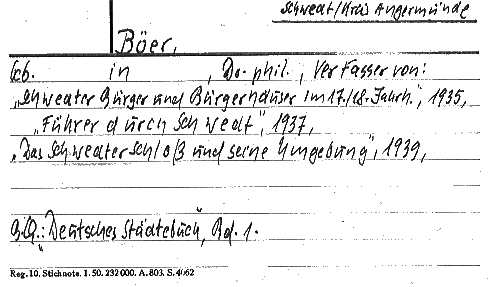 Schwedt/Kreis Angermünde
Böer,
Geb. in , Dr. phil., Verfasser von:
"Schwedter Bürger und Bürgerhäuser im 17./18. Jahrh.", 1935,
"Führer durch Schwedt", 1937,
"Das Schwedter Schloß und seine Umgebung", 1939,
B.Q.: "Deutsches Städtebuch", Bd. 1.
Reg. 10. Stichnote. 1. 50. 232000. A. 803. S. 4062